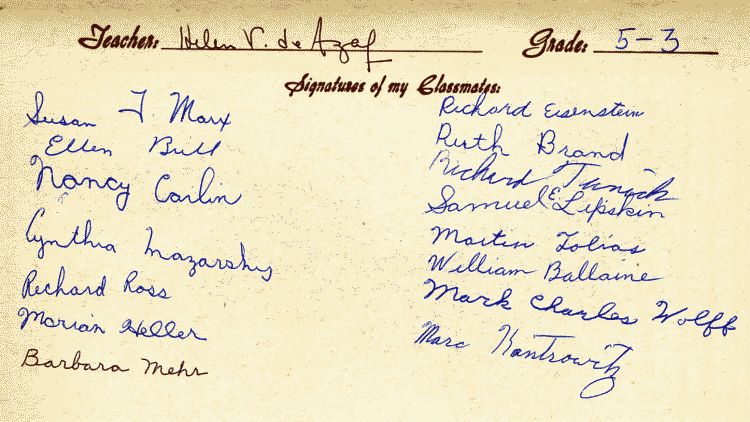 Teacher: Helen V. de Azaf
Grade: 5-3
Signatures of my Classmates:
Susan J. Marx
Ellen Bull
Nancy Carlin
Cynthia Mazarsky
Richard Ross
Marian Heller
Barbara Mehr
Richard Eisenstein
Ruth Brand
Richard
Samuel E. Lipskin
Martin Tobias
William Ballaine
Mark Charles Wolff
Marc Kantrowitz